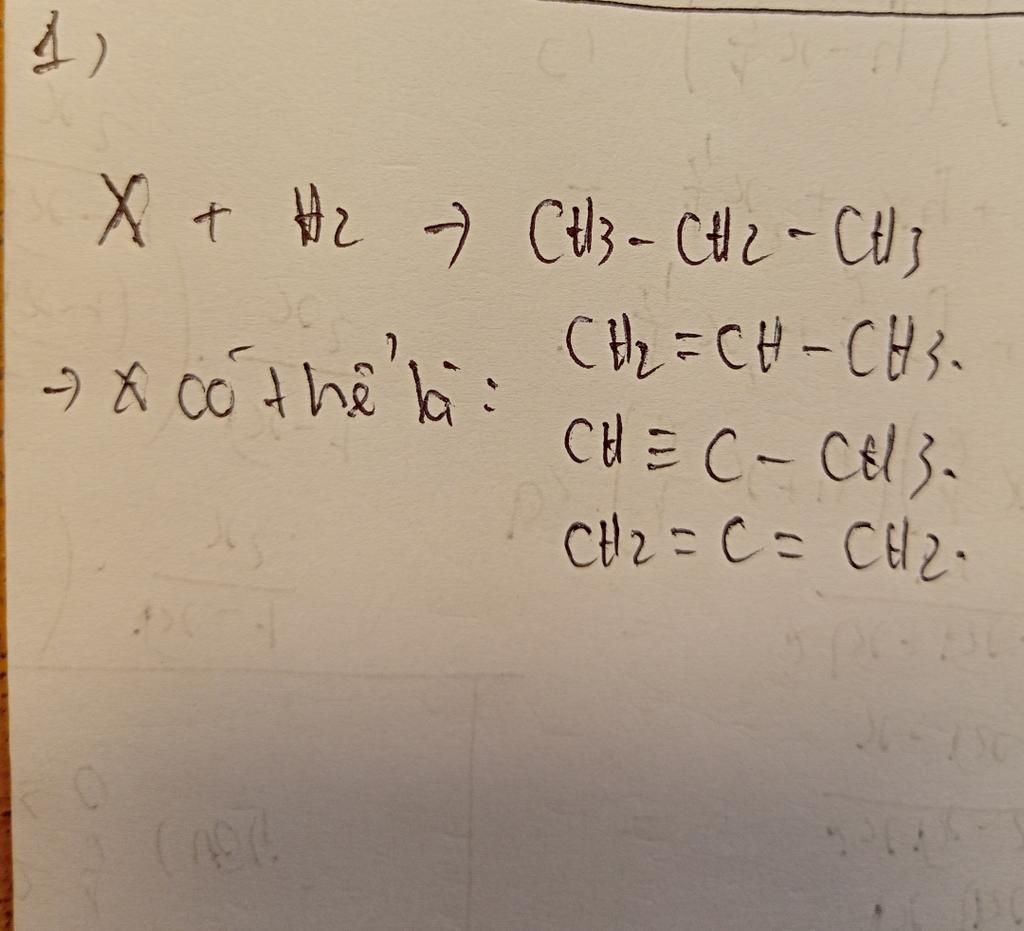 1)
X + H2 → CH3 - CH2 - CH3
→ X có thể là: CH2 = CH - CH3.
CH ≡ C - CH3.
CH2 = C = CH2.